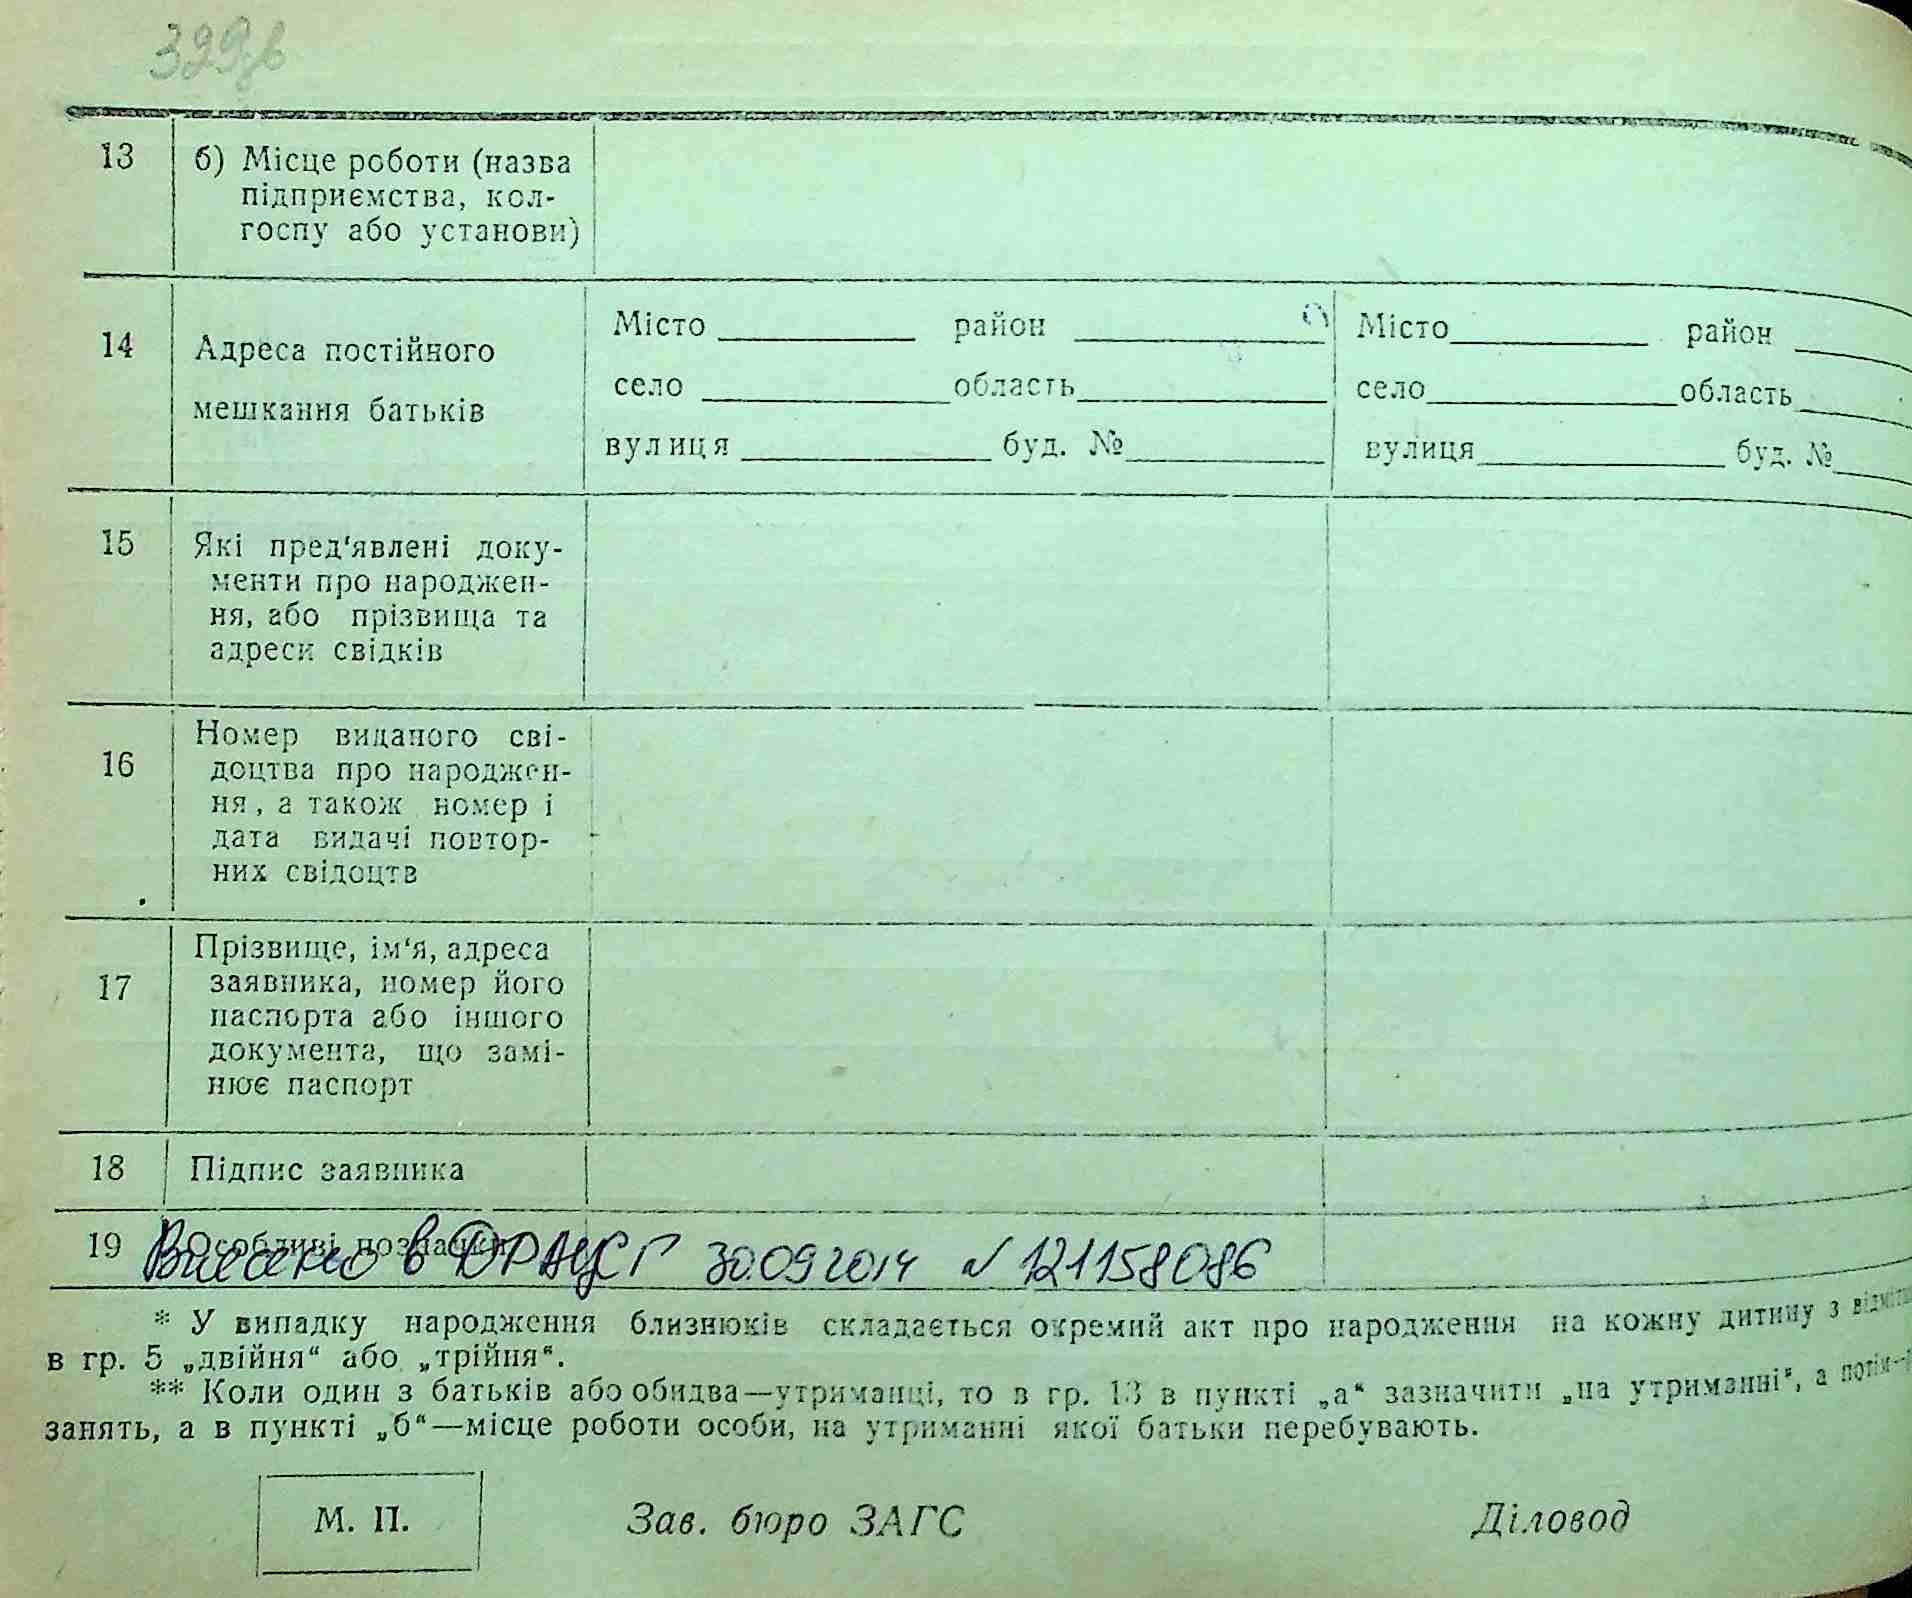 329зв
13 б) Місце роботи (назва
підприємства, кол-
госпу або установи)
14 Адреса постійного
мешкання батьків
Місто район Місто район
село область село область
вулиця буд. № вулиця буд. №
15 Які пред'явлені доку-
менти про народжен-
ня, або прізвища та
адреси свідків
16 Номер виданого сві-
доцтва про народжен-
ня, а також номер і
дата видачі повтор-
них свідоцтв
17 Прізвище, ім'я, адреса
заявника, номер його
паспорта або іншого
документа, що замі-
нює паспорт
18 Підпис заявника
19 Особливі позначки
Внесено в ДРАЦСГ 30.09 2014 N 121158086
* У випадку народження близнюків складається окремий акт про народження на кожну дитину з
в гр. 5 „двійня“ або „трійня“.
** Коли один з батьків або обидва—утриманці, то в гр. 13 в пункті „а“ зазначити „на утриманні“, а потім—
занять, а в пункті „б“—місце роботи особи, на утриманні якої батьки перебувають.
М. П. Зав. бюро ЗАГС Діловод